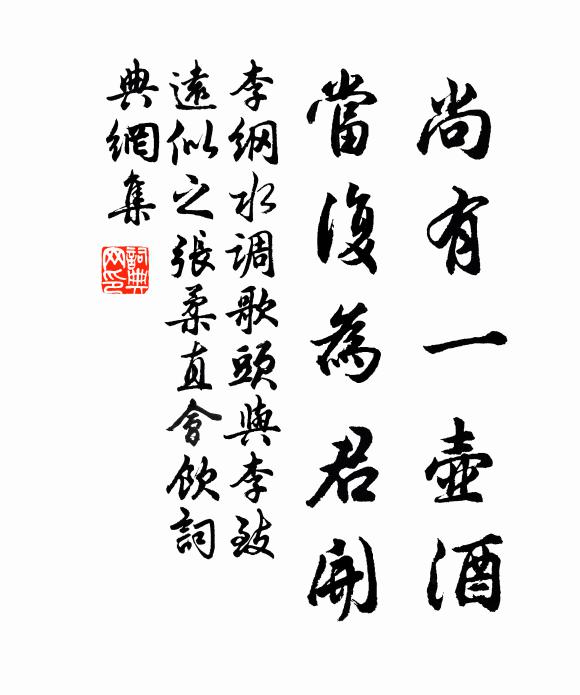 尚有一壺酒
當復為君開
李綱水調歌頭與李致
遠似之張柔直會飲詞
典網集
詞典
网印